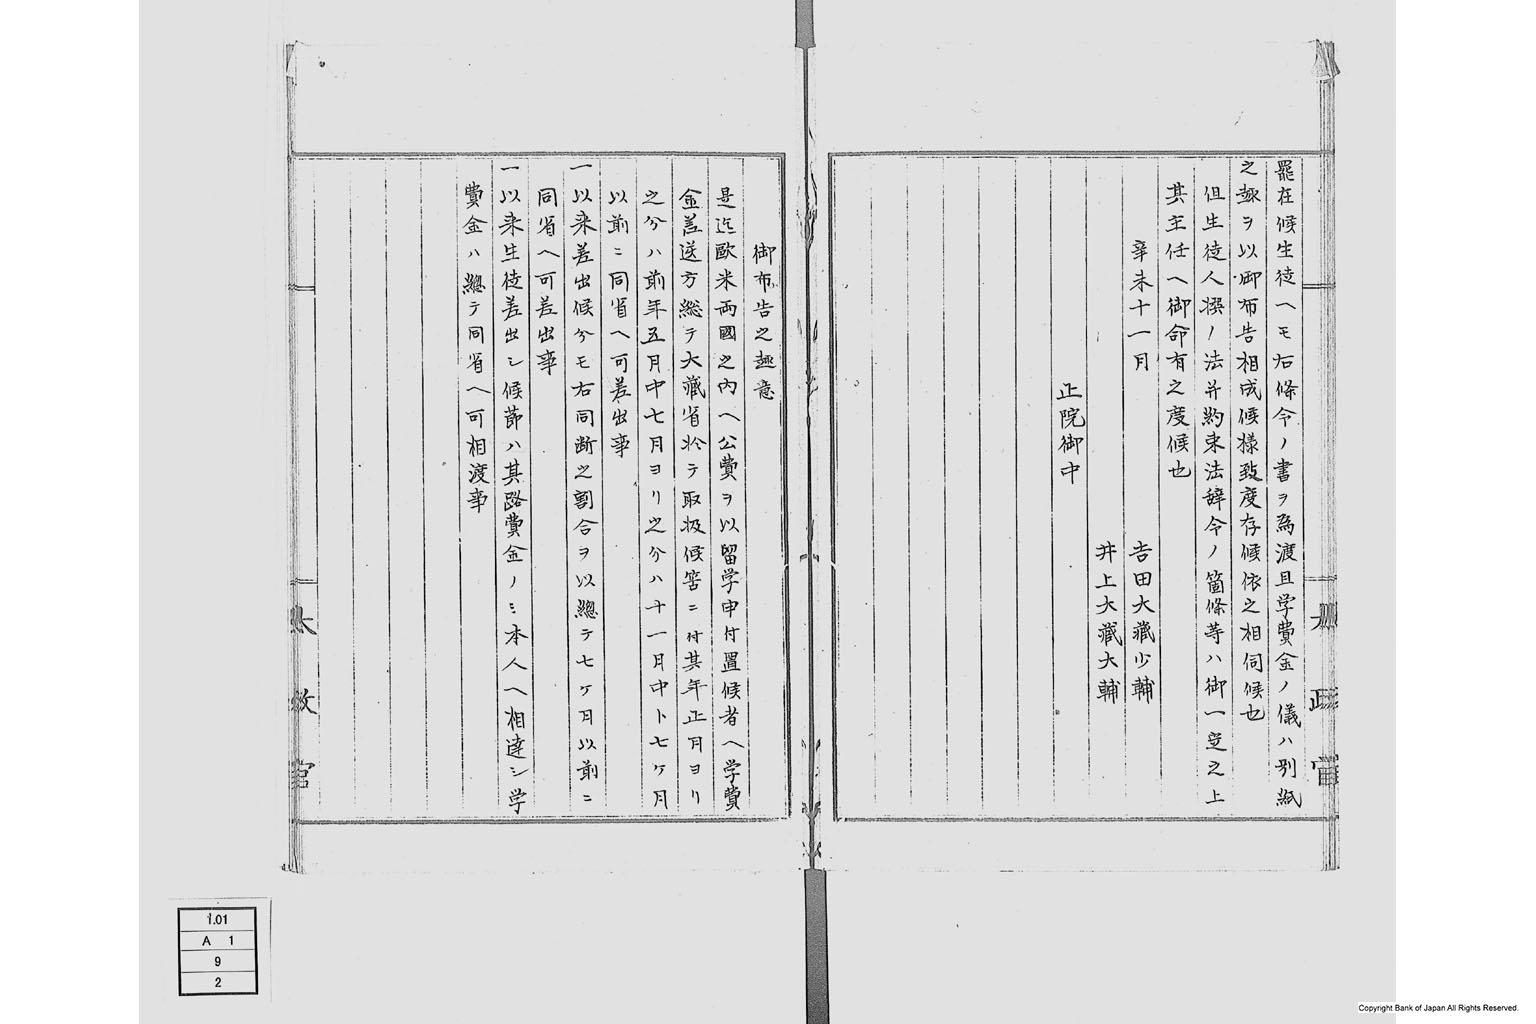 罷在候生徒ヘモ右條令ノ書ヲ為渡且学費金ノ儀ハ別紙
之趣ヲ以御布告相成候様致度存候依之相伺候也
但生徒人撰ノ法并約束法辞令ノ箇條等ハ御一定之上
其主任ヘ御命有之度候也
辛未十一月
吉田大藏少輔
井上大藏大輔
正院御中
太政官
御布告之趣意
是迄歐米両國之内ヘ公費ヲ以留学申付置候者ヘ学費
金差送方総テ大藏省於テ取扱候筈ニ付其年正月ヨリ
之分ハ前年五月中七月ヨリ之分ハ十一月中ト七ケ月
以前ニ同省ヘ可差出事
一以来差出候分モ右同断之割合ヲ以總テ七ケ月以前ニ
同省ヘ可差出事
一以来生徒差出シ候節ハ其路費金ノミ本人ヘ相達シ学
費金ハ總テ同省ヘ可相渡事
太政官
1.01
A 1
9
2
Copyright Bank of Japan All Rights Reserved.